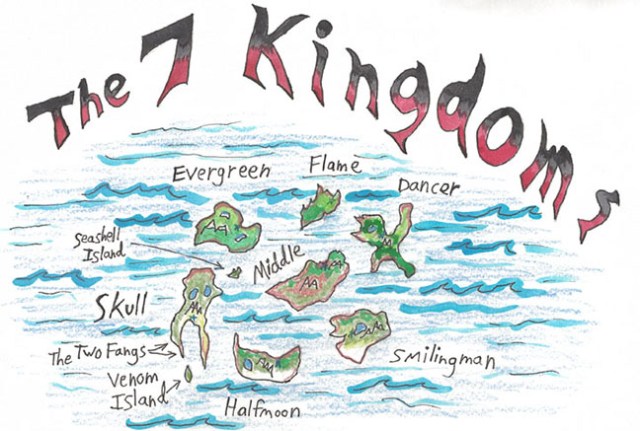 The 7 Kingdoms
Evergreen
Flame
Dancer
Seashell
Island
Middle
Skull
The Two Fangs
Smilingman
Venom
Island
Halfmoon